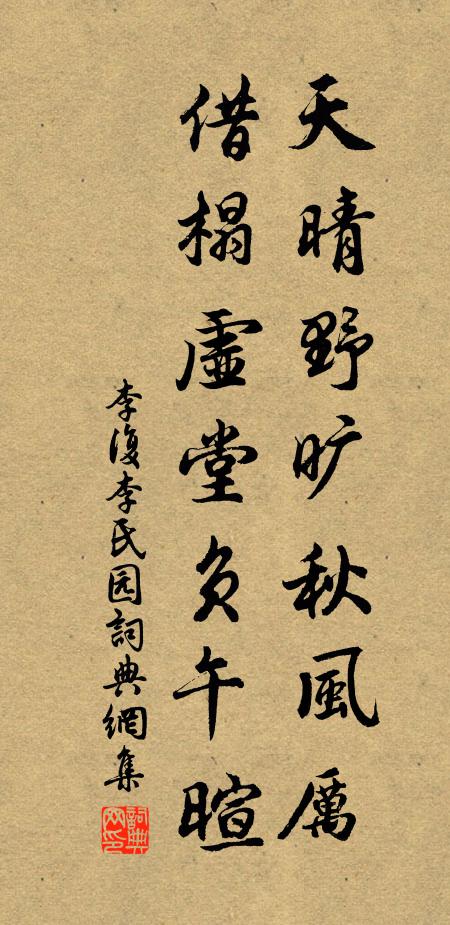 天晴野旷秋風厲
借榻虛堂负午暄
李復李氏园詞典網集
詞典網印